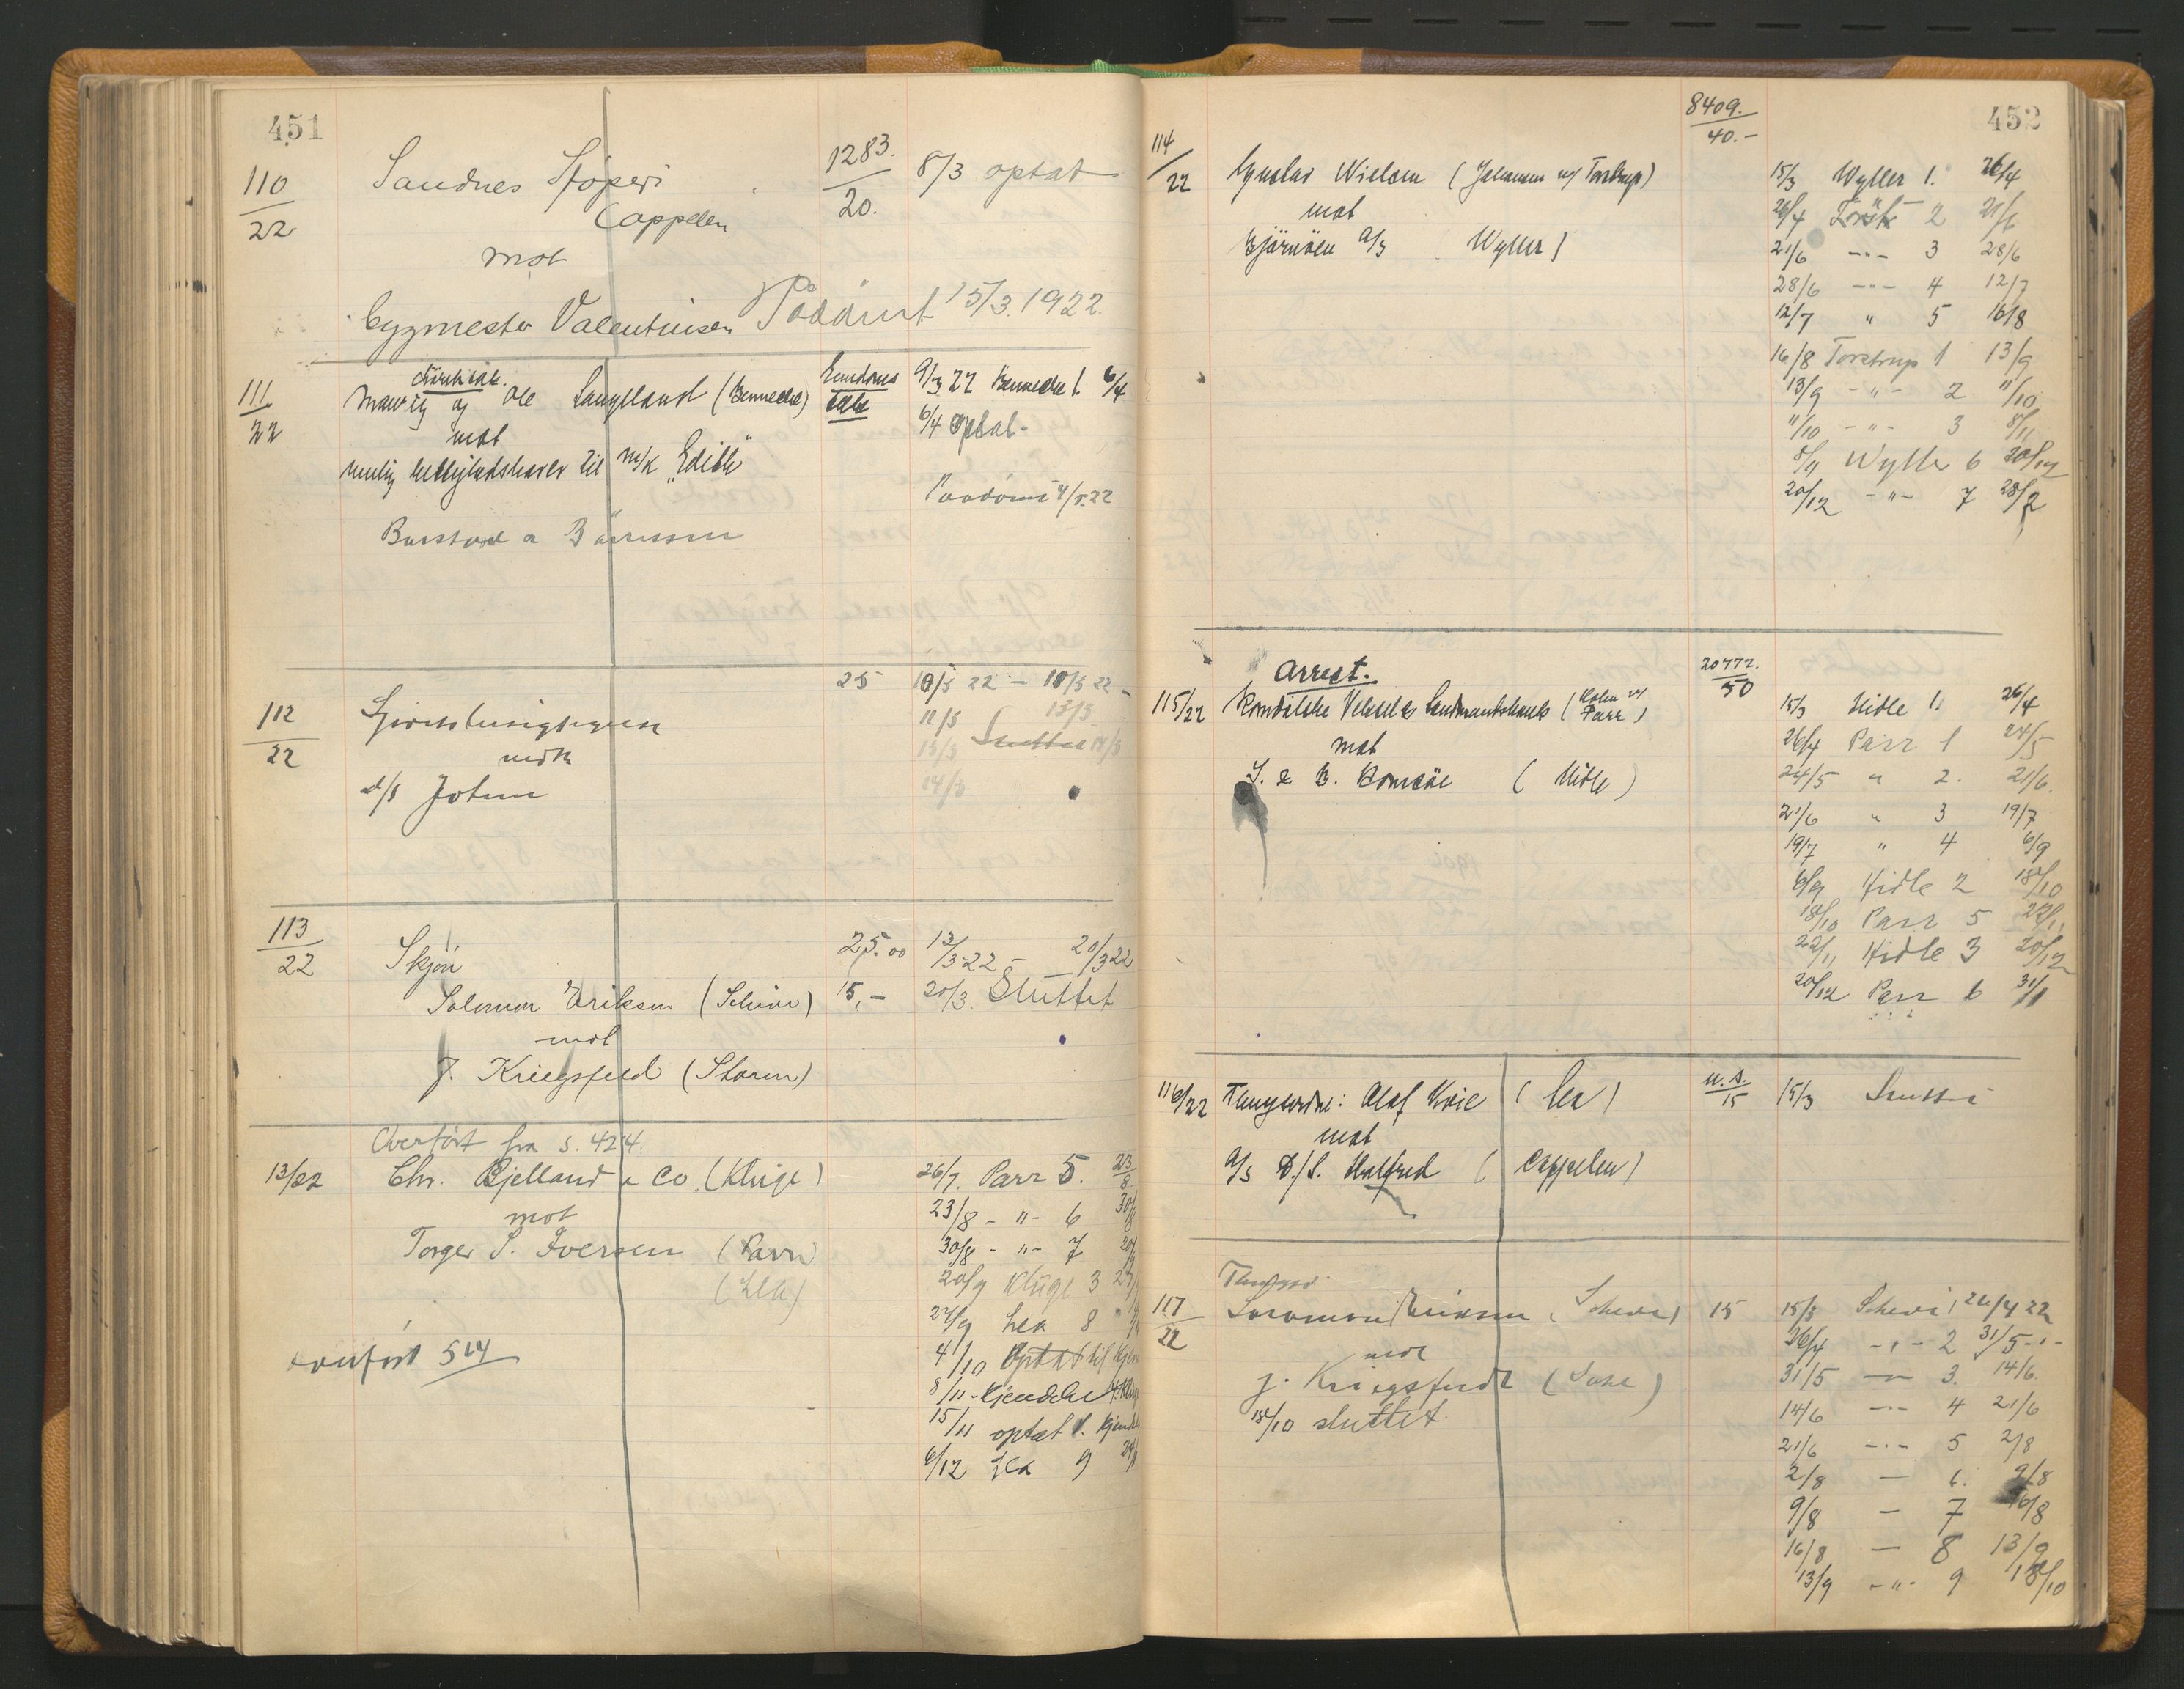 451
110/22 Sandnes Støperi 1283./20. 8/3 optat
Cappelen
mot
bygmester Valentinsen Pådømt 15/3. 1922.
111/22 og Ole Langeland (Bennecke) 9/3 22 Bennecke 1. 6/4
mot 6/4 optat.
til m/k "Edith"
Paadømt 4/5 22
112/22 25 10/3 22 - 10/3 22
11/3 13/3
A/S Jotun 14/3
113/22 Skjøn 25.00 13/3-22 - 20/3 22
Salomon Eriksen (Scheie) 15,- 20/3. Sluttet
mot
J. Kriegsfeld (Storm)
Overført fra s. 424.
13/22 Chr. Bjelland & Co. (Kluge) 26/7. Parr 5. 23/8
mot 23/8 - " - 6 30/8
Torger S. Iversen (Parr) 30/8 - " - 7 20/9
(Lea) 20/9 Kluge 3 27/9
27/9 Lea 8
overført 514 4/10 Optat til
8/11 - Kjendelse
15/11 optat t. Kjendel
6/12 Lea 9 24/1
452
8409./40.-
114/22 Nielsen (Johansen v/ Torstrup) 15/3 Wyller 1. 26/4
mot 26/4 Torstr 2 21/6
Bjørnøen A/S Wyller) 21/6 -"- 3 28/6
28/6 -"- 4 12/7
12/7 " 5 16/8
16/8 Torstrup 1 13/9
13/9 -"- 2 11/10
11/10 -"- 3 8/11
8/11 Wyller 6 20/12
20/12 -"- 7 28/2
Arrest. 20772./50
115/22 Romdalske Veksel & Landmandsbank (Holm v/ Parr) 15/3 Hidle 1. 26/4
mot 26/4 Parr 1 24/5
(Hidle) 24/5 " 2. 21/6.
21/6 " 3 19/7
19/7 " 4 6/9
6/9 Hidle 2 18/10
18/10 Parr 5 22/11
22/11 Hidle 3 20/12
20/12 Parr 6 31/1
116/22 Olaf Kvie (Lea) u.s./15 15/3
mot
A/S D/S. Halfred (Cappelen)
117/22 Salomon Eriksen (Scheie) 15 15/3 Scheie 1 26/4 22
mot 26/4 -"- 2 31/5 -"-
J. Kriegsfeldt 31/5 -"- 3. 14/6.
18/10 sluttet. 14/6 -"- 4 21/6
21/6 -"- 5 2/8
2/8 — 6. 9/8
9/8 — 7 16/8
16/8 — 8 13/9
13/9 -"- 9 18/10